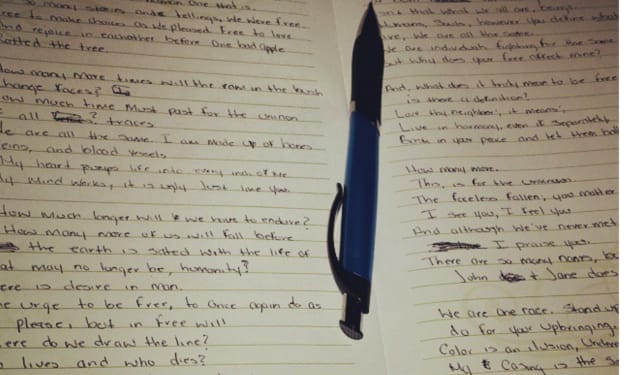 one that is.
so many stories and tellings, we were free
free to make choices as we pleased. Free to love
and rejoice in eachother before One bad apple
rotted the tree.
How many more times will the row in the bush
change faces?
How much time must past for the
all ? traces
We are all the same. I am made up of bones
veins, and blood vessels
My heart pumps life into every inch of me
My mind works, it is ugly Just like you
How much longer will we have to endure?
How many more of us will fall before
the earth is Sated with the life of
at may no longer be, humanity?
ere is desire in man.
he urge to be free, to once again do as
please, but in free will
ere do we draw the line?
lives and who dies?
that what we all are, beings.
humans, Souls, however you define what
we are all the same.
We are individuals fighting for the same
but why does your free affect mine?
And, what does it truly mean to be free
is there a definition?
Love thy neighbor, it means,
Live in harmony, even if Separately
Bask in your peace and let them bat
How many more.
This, is for the unknown
The faceless fallen, you matter
I see you, I feel you
And although we've never met
I praise you.
There are so many names, bu
John + Jane does
We are one race. Stand up
do for your upbringing.
Color is an ilusion, Unders
My Casing is the Sa